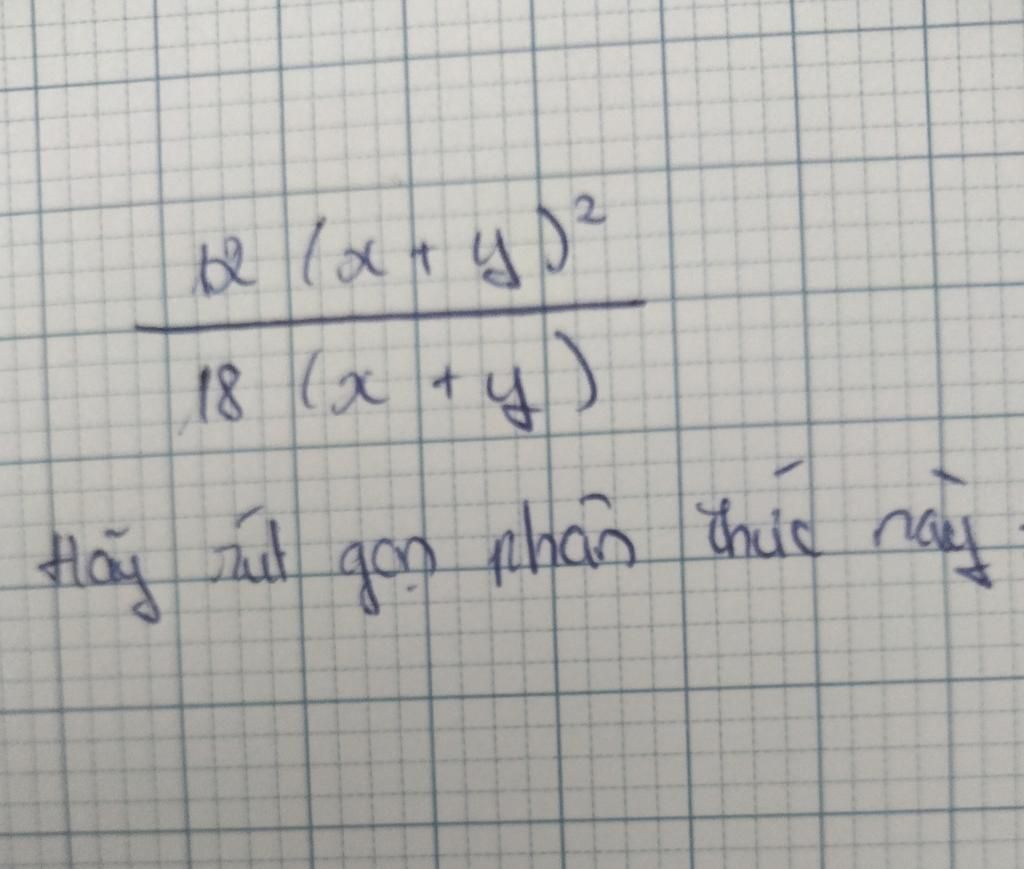 12 (x + y)²
18 (x + y)
Hãy rút gọn phân thức này.